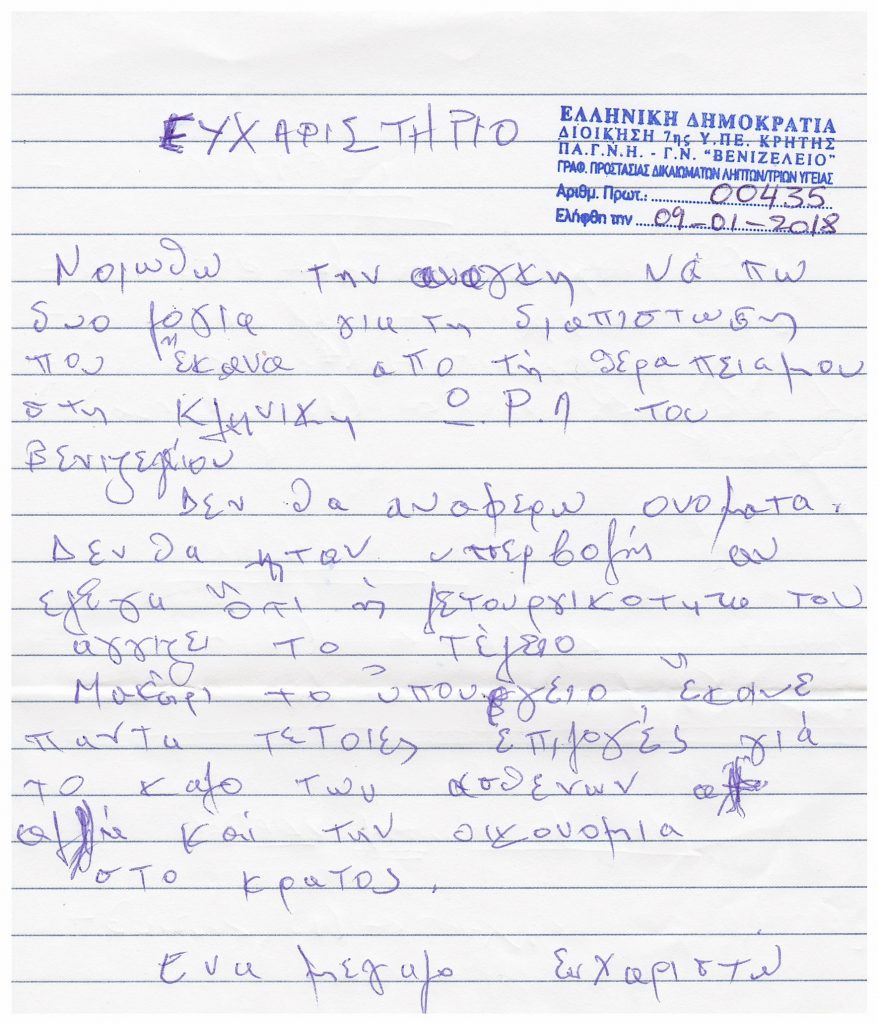 ΕΥΧΑΡΙΣΤΗΡΙΟ
ΕΛΛΗΝΙΚΗ ΔΗΜΟΚΡΑΤΙΑ
ΔΙΟΙΚΗΣΗ 7ης Υ.ΠΕ. ΚΡΗΤΗΣ
ΠΑ.Γ.Ν.Η. - Γ.Ν. "ΒΕΝΙΖΕΛΕΙΟ"
ΓΡΑΦ. ΠΡΟΣΤΑΣΙΑΣ ΔΙΚΑΙΩΜΑΤΩΝ ΛΗΠΤΩΝ/ΤΡΙΩΝ ΥΓΕΙΑΣ
Αριθμ. Πρωτ.: 00435
Ελήφθη την 09-01-2018
Νοιωθω την αναγκη νά πω
δυο λογια για τη διαπιστωση
που ἔκανα απο τὴ θεραπεια μου
στη Κληνικη Ο.Ρ.Λ του
Βενιζελειου
Δεν θα αναφερω ονοματα.
Δεν θα ηταν υπερβολής αν
ελεγα ὅτι ἡ λετουργικοτητα του
αγγιζει το τέλειο
Μακάρι το ὑπουργειο ἔκανε
παντα τετοιες ἐπιλογές γιά
το καλο των ασθενων
αλλά και την οικονομια
στο κρατος.
Ενα μεγαλο Ευχαριστώ